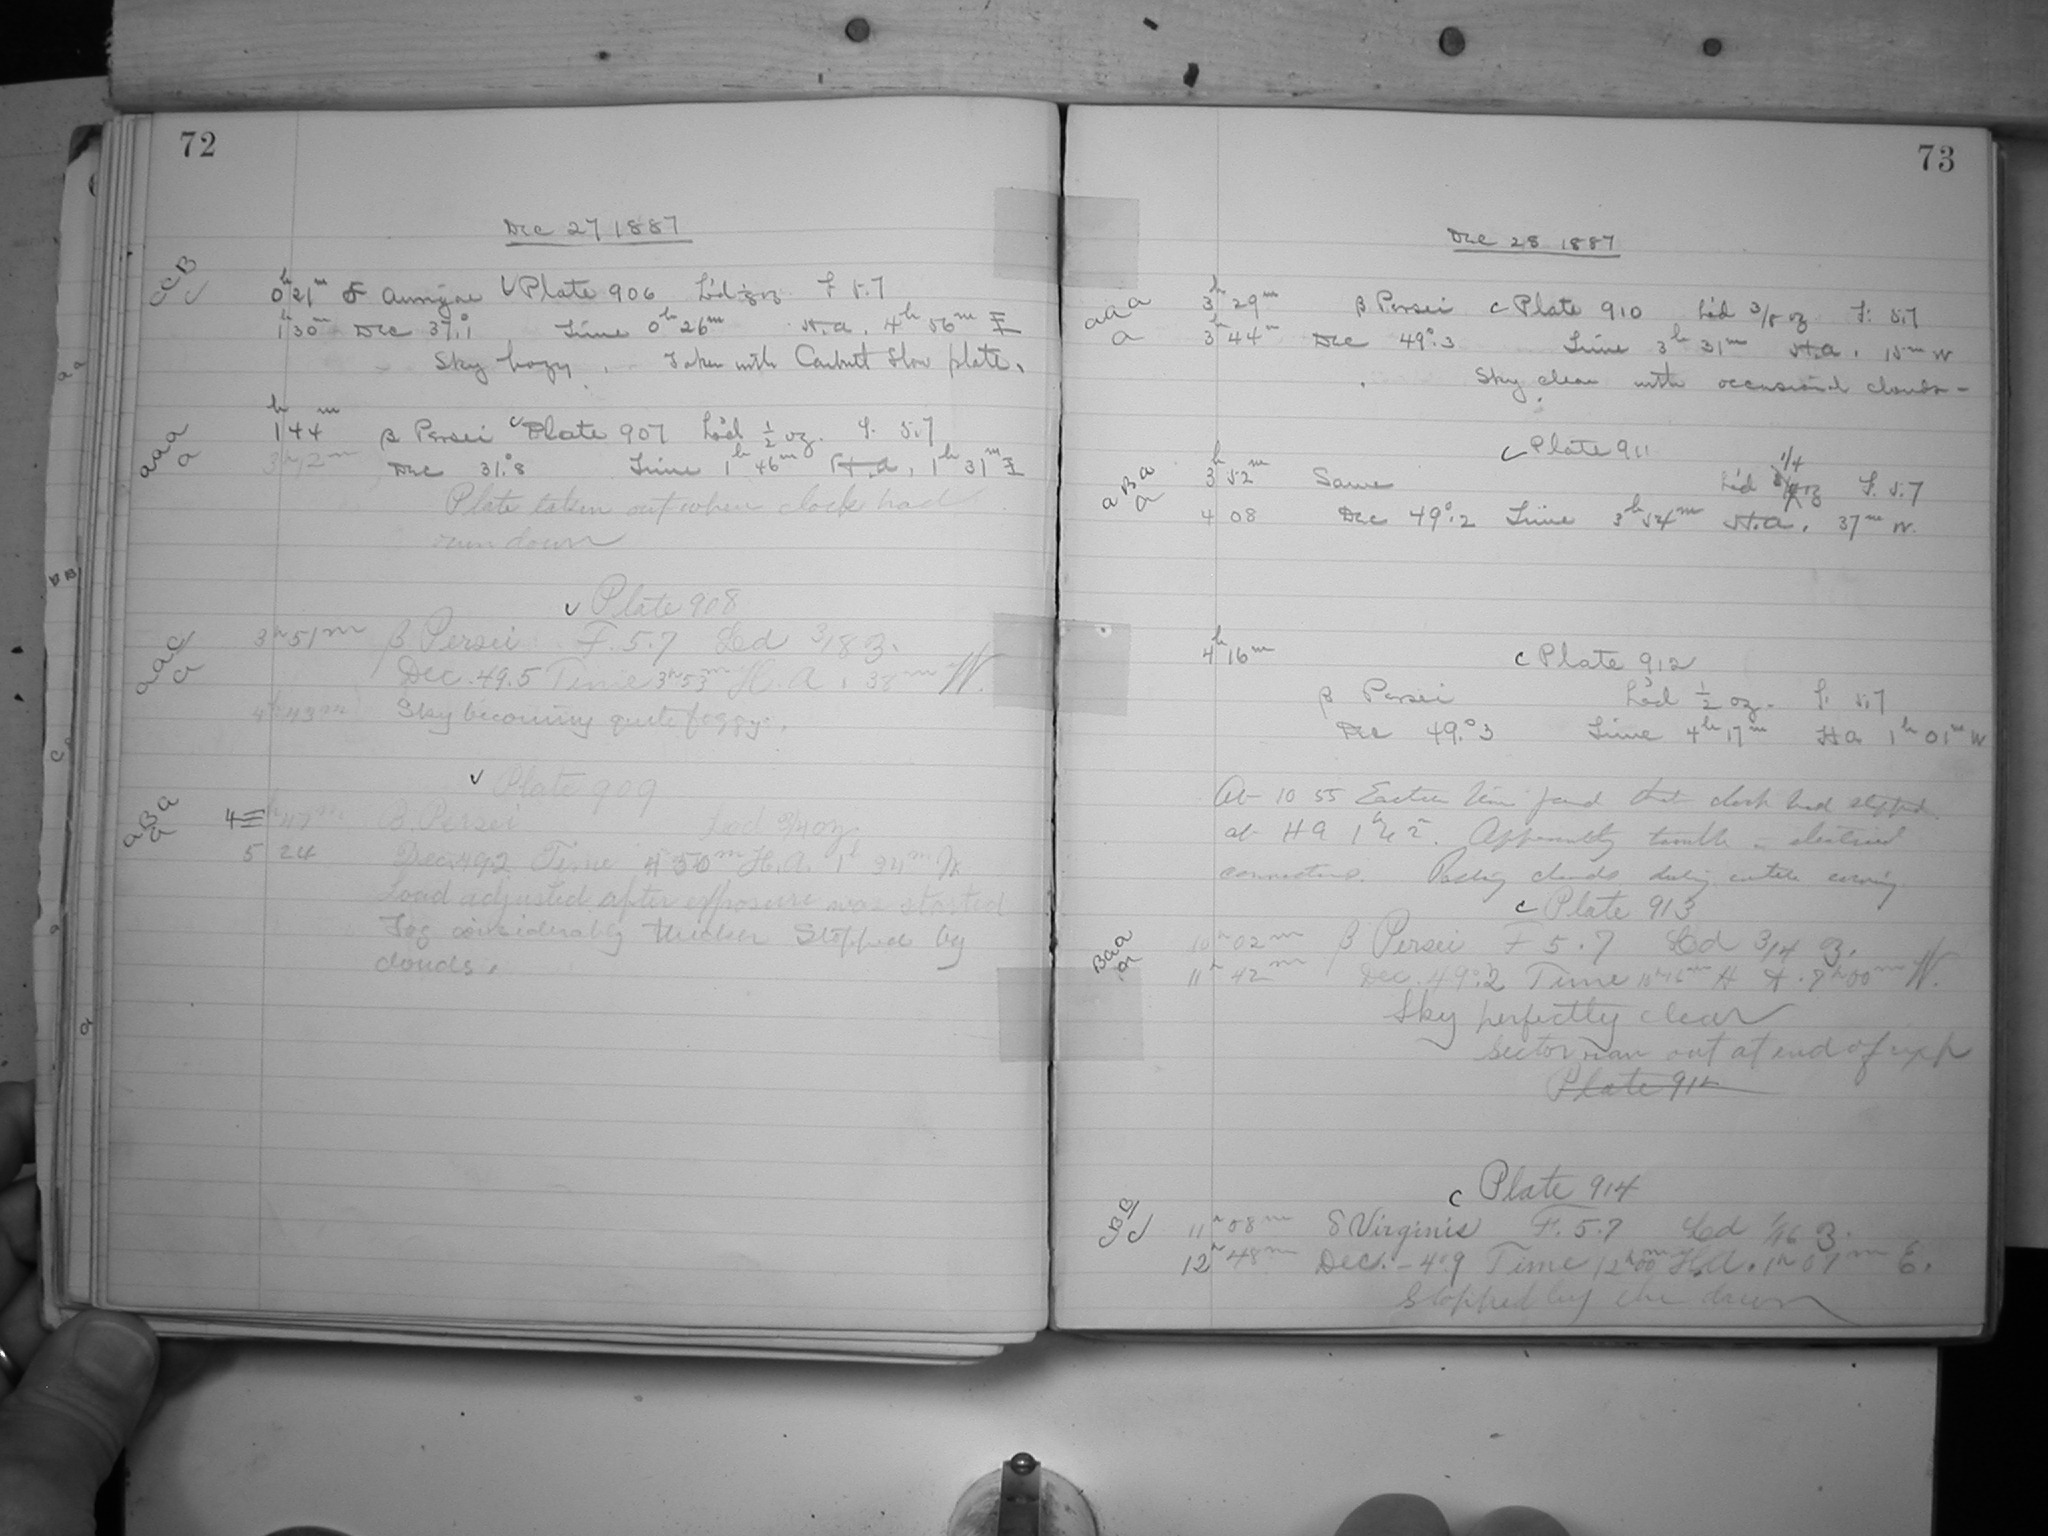 72
Dec 27 1887
CCB
0h 21m δ Aurigae Plate 906 L'd 1/8 oz F 5.7
1h 30m Dec 37.°1 Time 0h 26m H.A. 4h 56m E
Sky hazy. Taken with Carbutt slow plate.
aaa
a
1h 44m β Persei Plate 907 L'd 1/2 oz. F. 5.7
3h 12m Dec 31.°8 Time 1h 46m H.A. 1h 31m E
Plate taken out when clock had
run down
Plate 908
aac
a
3h 51m β Persei F. 5.7 Ld 3/8 oz.
Dec. 49.5 Time 3h 53m H.A. 38m W.
4h 43m Sky becoming quite foggy.
Plate 909
aBa
a
4h 47m β. Persei L'd 3/4 oz
5 24 Dec. 49.2 Time 4 50m H.A. 1h 34m W.
Load adjusted after exposure was started
Fog considerably thicker Stopped by
clouds.
73
Dec 28 1887
aaa
a
3h 29m β Persei Plate 910 L'd 3/8 oz F. 5.7
3h 44m Dec 49.°3 Time 3h 31m H.A. 15m W
Sky clear with occasional clouds-
Plate 911
aBa
a
3h 52m Same L'd 1/4 oz F. 5.7
4 08 Dec 49.°2 Time 3h 54m H.A. 37m W.
4h 16m Plate 912
β Persei L'd 1/2 oz. F. 5.7
Dec 49.°3 Time 4h 17m HA 1h 01m W
At 10 55 Eastern time found that clock had stopped
at HA 1h. Apparently trouble in electrical
connections. Passing clouds during entire evening
Plate 913
Baa
a
10h 02m β Persei F 5.7 Ld 3/4 oz.
11h 42m Dec. 49.°2 Time H A. 7h 00m W.
Sky perfectly clear
Sector ran out at end of exp
Plate 914
Plate 914
11h 08m δ Virginis F. 5.7 Ld 1/16 oz.
12h 48m Dec. -4°.9 Time 12h 00m H.A. 1h 07m E.
Stopped by the dawn